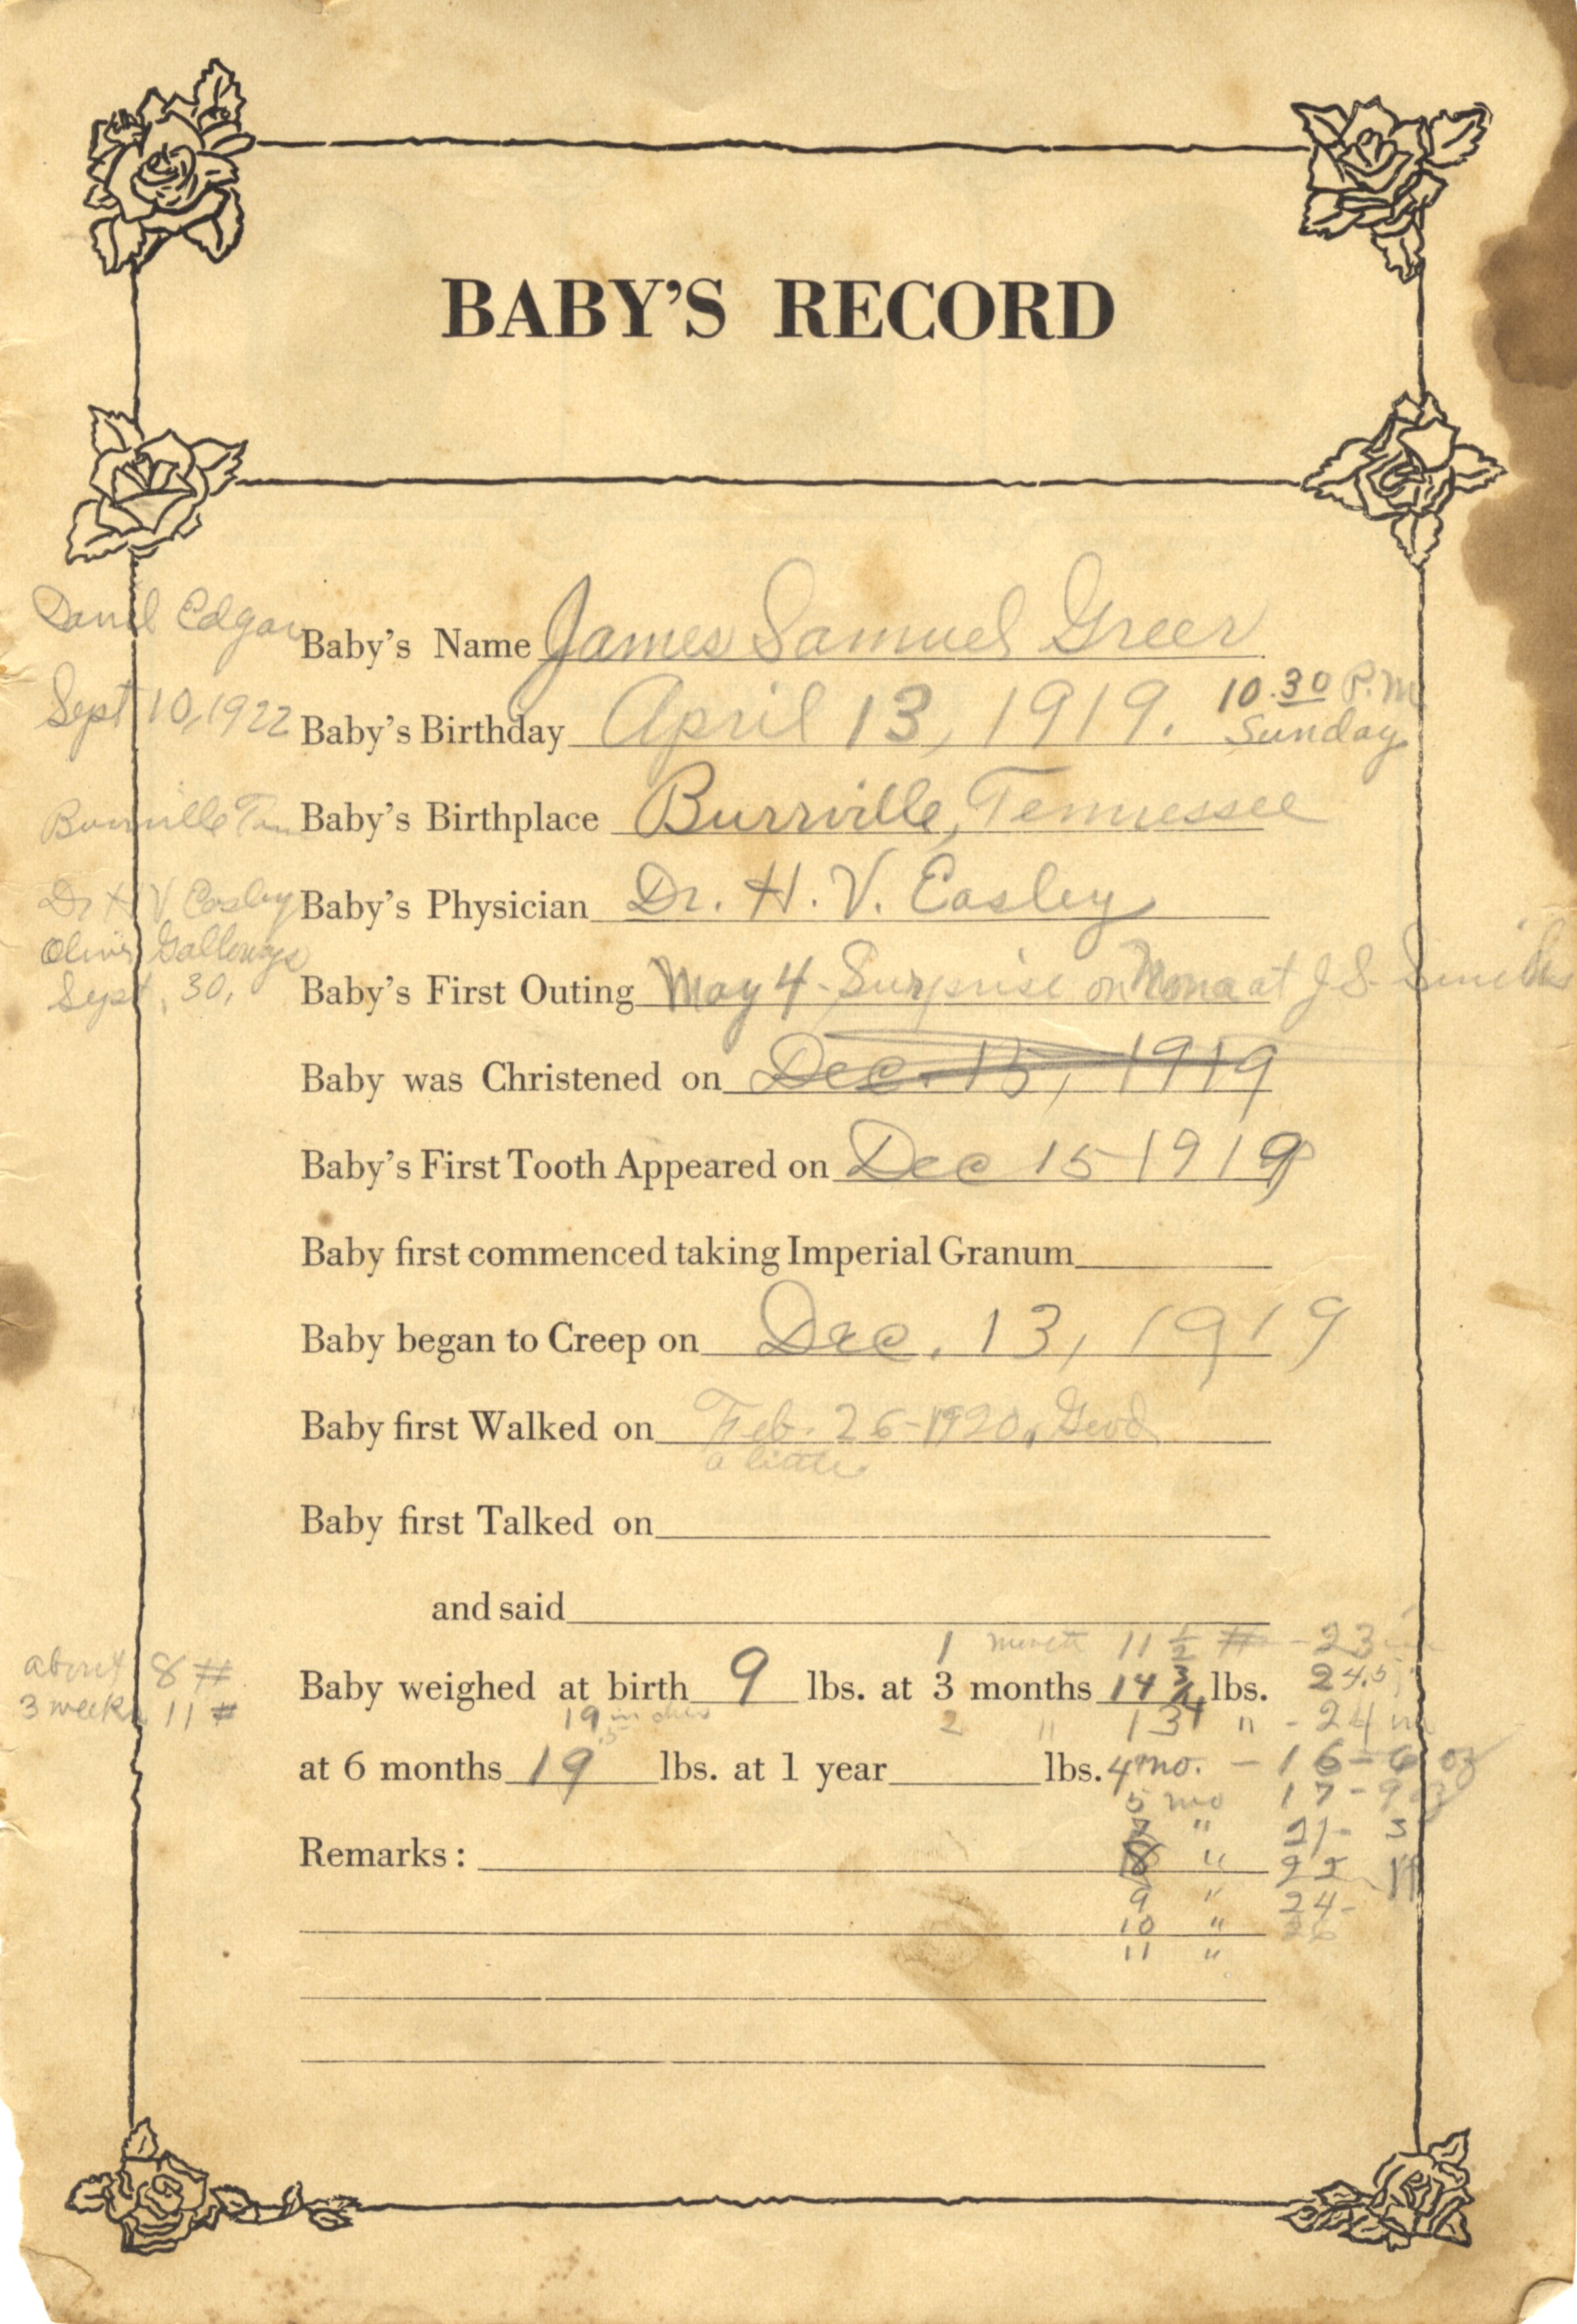 BABY'S RECORD
Edgar Baby's Name James Samuel Greer
10.30 P.M
Sept 10, 1922 Baby's Birthday April 13, 1919. Sunday
Baby's Birthplace Burrville, Tennessee
Dr H V Easley Baby's Physician Dr. H. V. Easley
Sept. 30, Baby's First Outing May 4 - Surprise on Mona at J. S. Smiths
Baby was Christened on Dec. 15, 1919
Baby's First Tooth Appeared on Dec 15 1919
Baby first commenced taking Imperial Granum
Baby began to Creep on Dec. 13, 1919
Baby first Walked on Feb. 26-1920, Good
a little
Baby first Talked on
and said
1 month 11 1/2 # - 23 in
about 8 # Baby weighed at birth 9 lbs. at 3 months 14 3/4 lbs. 24.5 "
3 weeks 11 # 19 inches 2 " 13 " - 24 in
at 6 months 19 lbs. at 1 year lbs. 4 mo. - 16 - 6 oz
5 mo 17 - 9 oz
7 " 21 - 3
Remarks: 8 " 22
9 " 24 -
10 " 26
11 "